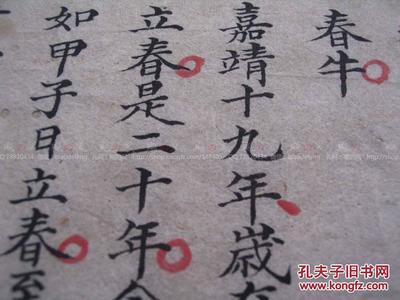 春牛
嘉靖十九年歲
立春是二十年
如甲子日立春至
孔夫子旧书网
www.kongfz.com